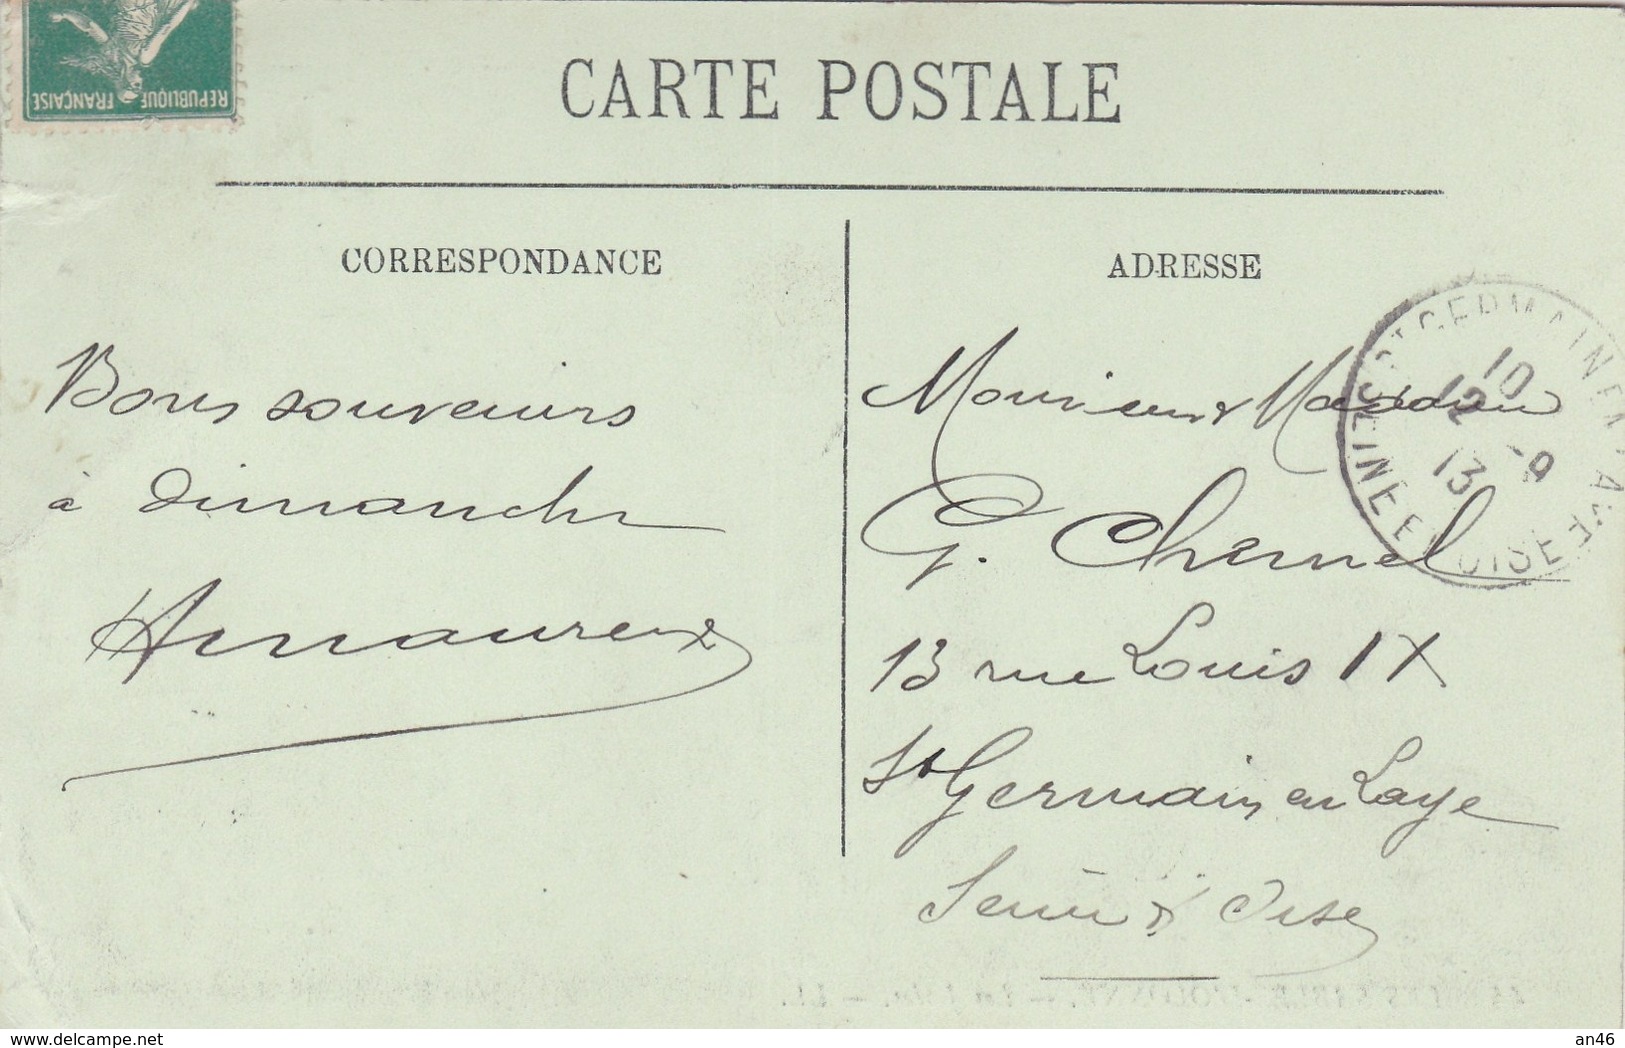 REPUBLIQUE FRANÇAISE
CARTE POSTALE
CORRESPONDANCE
ADRESSE
Bons souvenirs
à Dimanche
Monsieur & Madame
G. Chemel
13 rue Louis IX
St Germain en Laye
Seine & Oise
ST GERMAIN EN LAYE
10
12 -9
13
SEINE ET OISE
an46